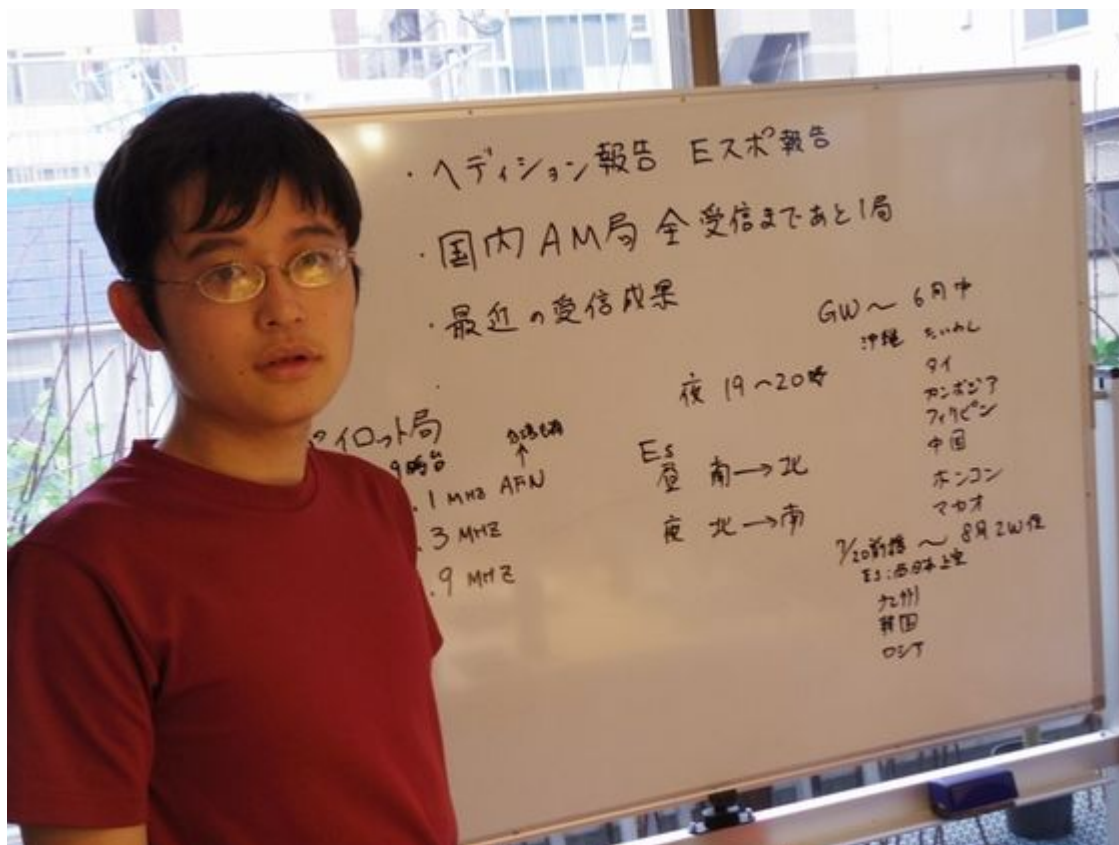 ・ヘディション報告 Eスポ報告
・国内AM局 全受信まであと1局
・最近の受信成果
・
イロット局
9時台
.1 MHz AFN
.3 MHz
.9 MHz
夜 19〜20時
Es
昼 南→北
夜 北→南
GW〜 6月中
沖縄 たいわん
タイ
カンボジア
フィリピン
中国
ホンコン
マカオ
7/20前後 〜 8月2W位
Es:西日本上空
九州
韓国
ロシア